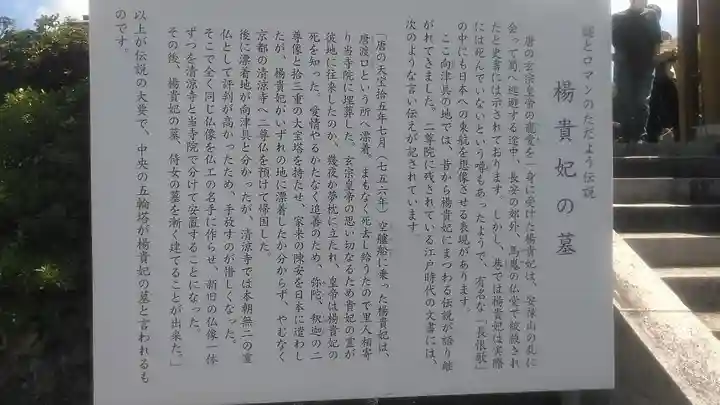 謎とロマンのただよう伝説
楊貴妃の墓
唐の玄宗皇帝の寵愛を一身に受けた楊貴妃は、安禄山の乱に
会って蜀へ逃避する途中、長安の郊外、馬嵬の仏堂で絞殺され
たと史書には示されております。しかし、巷では楊貴妃は実際
には死んでいないという噂もあったようで、有名な「長恨歌」
の中にも日本への東航を想像させる表現があります。
ここ向津具の地では、昔から楊貴妃にまつわる伝説が語り継
がれてきました。二尊院に残されている江戸時代の文書には、
次のような言い伝えが記されています。
「唐の天宝拾五年七月（七五六年）空艫舩に乗った楊貴妃は、
唐渡口という所へ漂着。まもなく死去し給うたので里人相寄
り当寺院に埋葬した。玄宗皇帝の思い切なるため貴妃の霊が
彼地に往来したのか、幾夜か夢枕に立たれ、皇帝は楊貴妃の
死を知った。愛情やるかたなく追善のため、弥陀、釈迦の二
尊像と拾三重の大宝塔を持たせ、家来の陳安を日本に遣わし
たが、楊貴妃がいずれの地に漂着したか分からず、やむなく
京都の清涼寺へ二尊仏を預けて帰国した。
後に漂着地が向津具と分かったが、清涼寺では本朝無二の霊
仏として評判が高かったため、手放すのが惜しくなった。
そこで全く同じ仏像を仏工の名手に作らせ、新旧の仏像一体
ずつを清涼寺と当寺院で分けて安置することになった。
その後、楊貴妃の墓、侍女の墓を漸く建てることが出来た。」
以上が伝説の大要で、中央の五輪塔が楊貴妃の墓と言われるも
のです。